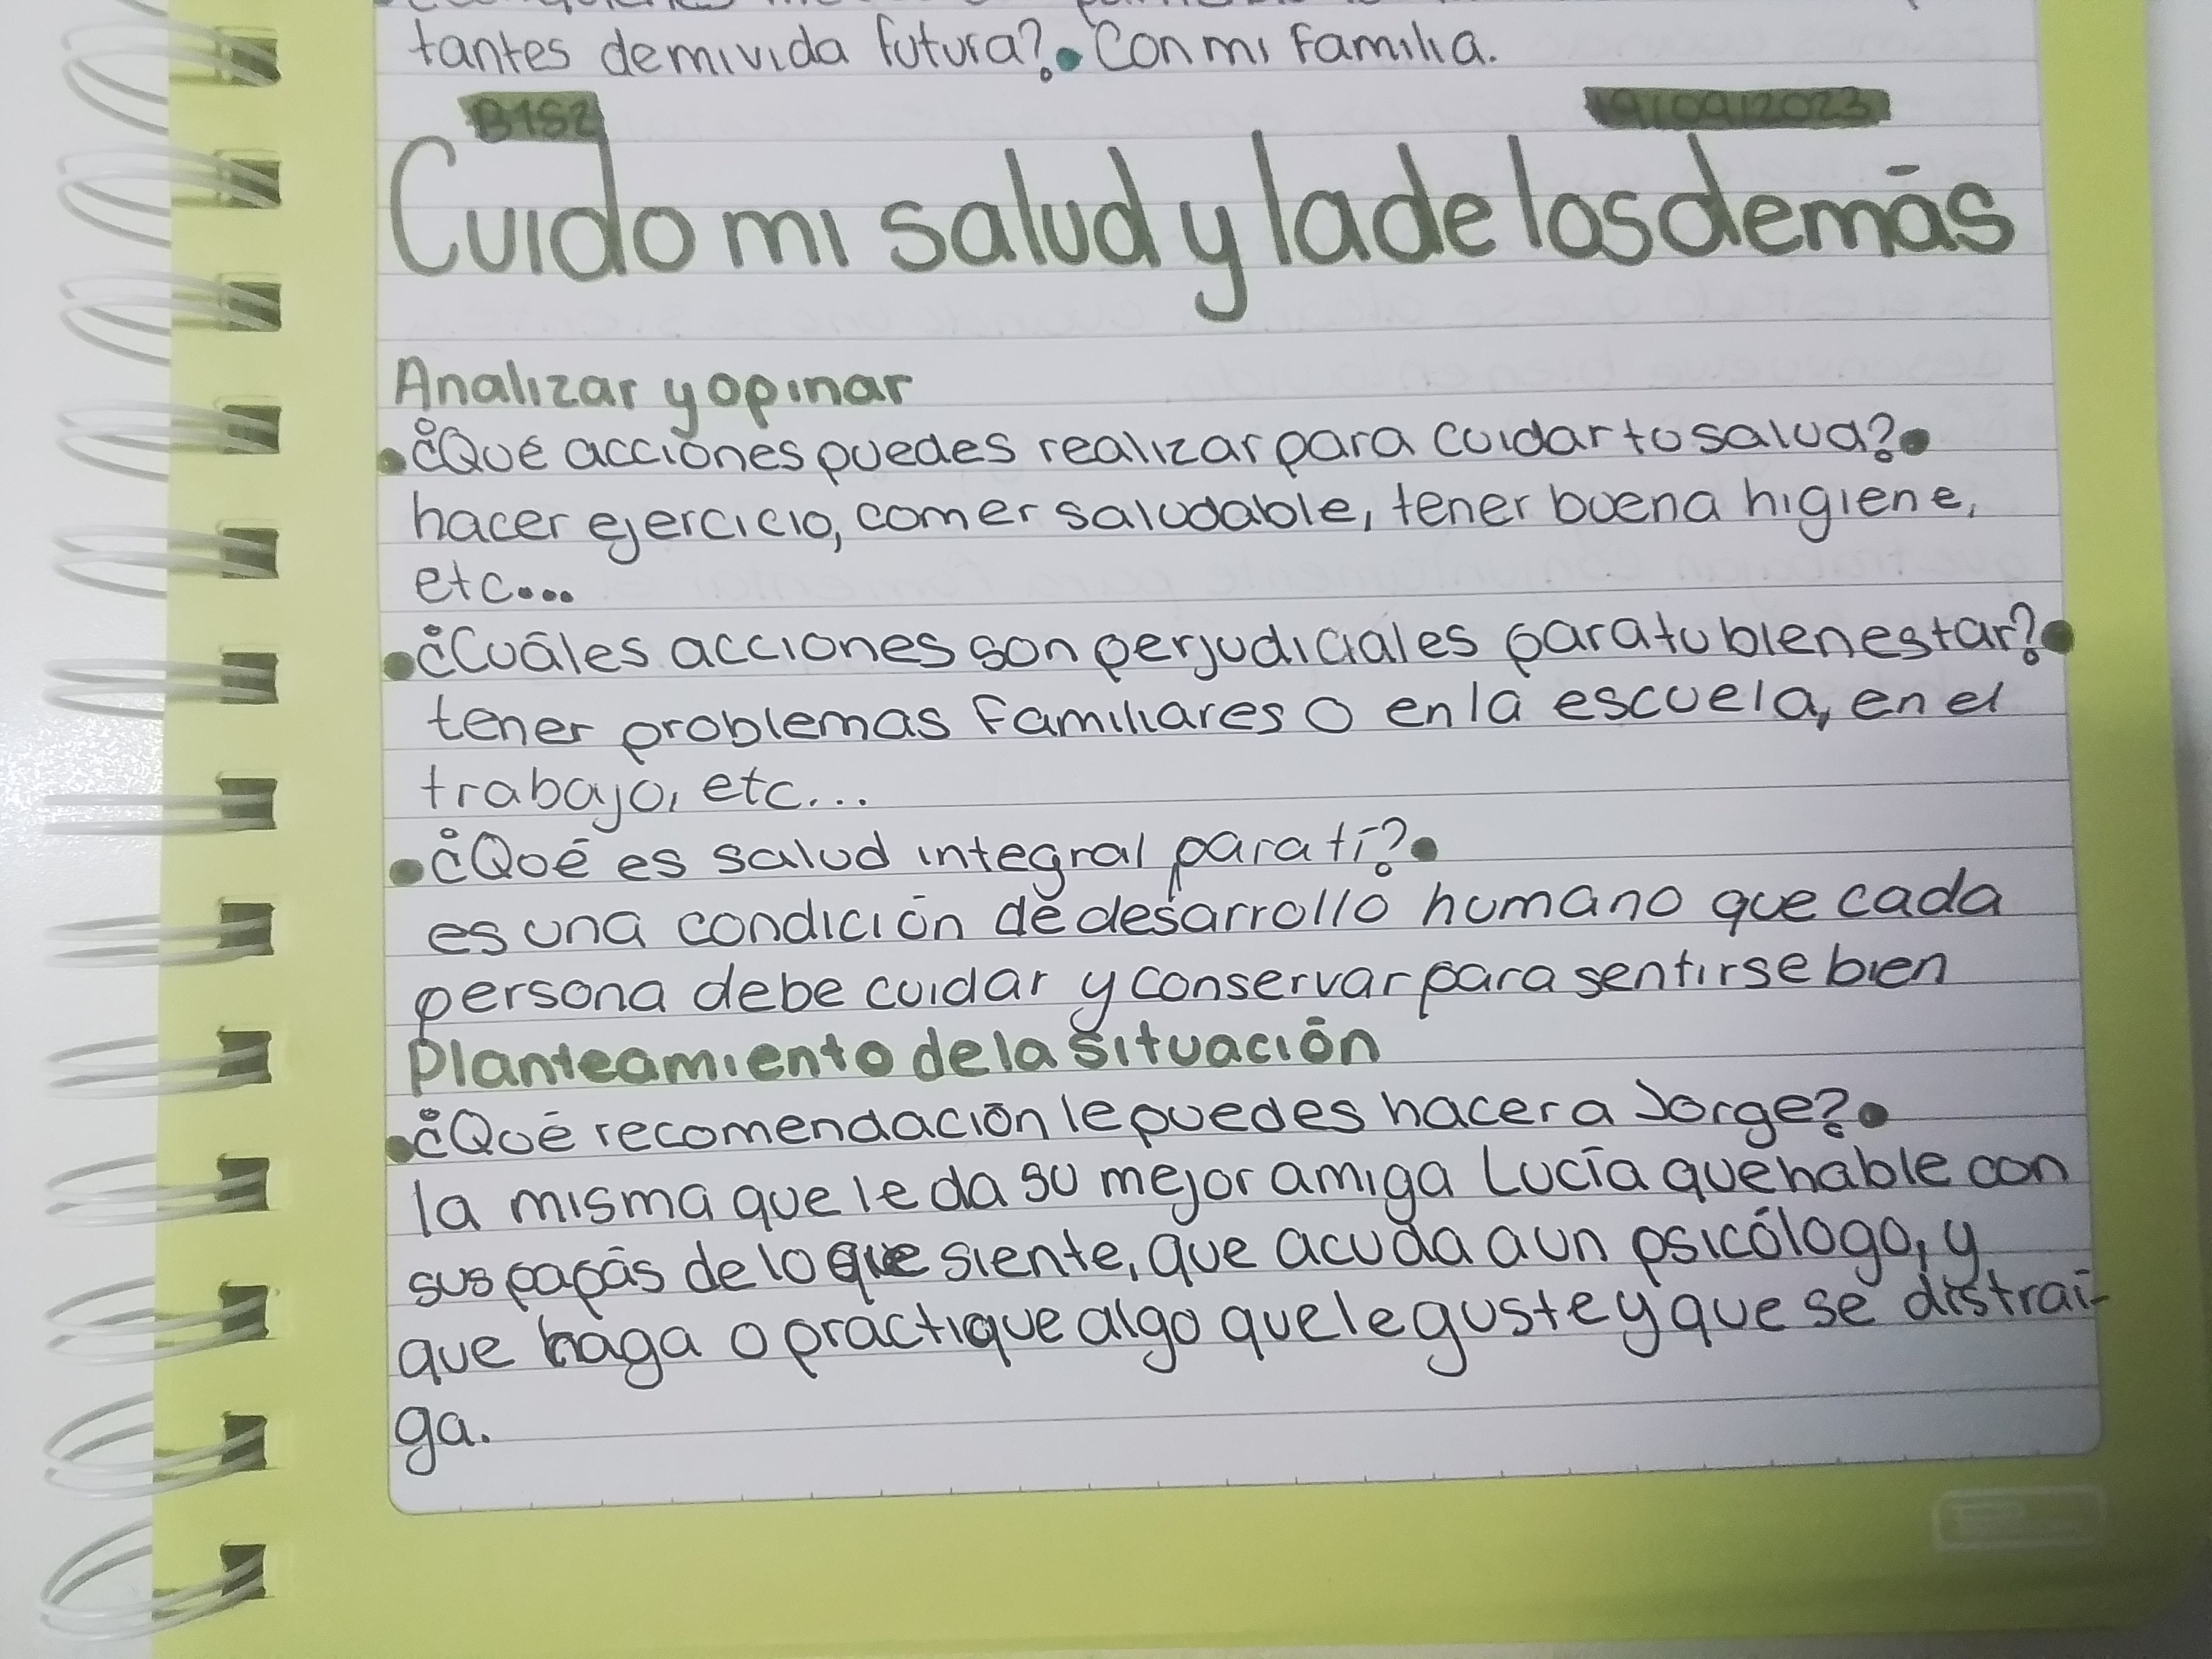 tantes de mi vida futura? Con mi familia.
B1S2
19/09/2023
Cuido mi salud y la de los demás
Analizar y opinar
¿Qué acciones puedes realizar para cuidar tu salud?
hacer ejercicio, comer saludable, tener buena higiene,
etc...
¿Cuáles acciones son perjudiciales para tu bienestar?
tener problemas familiares o en la escuela, en el
trabajo, etc...
¿Qué es salud integral para tí?
es una condición de desarrollo humano que cada
persona debe cuidar y conservar para sentirse bien
Planteamiento de la situación
¿Qué recomendación le puedes hacer a Jorge?
la misma que le da su mejor amiga Lucía que hable con
sus papás de lo que siente, que acuda a un psicólogo, y
que haga o practique algo que le guste y que se distrai-
ga.